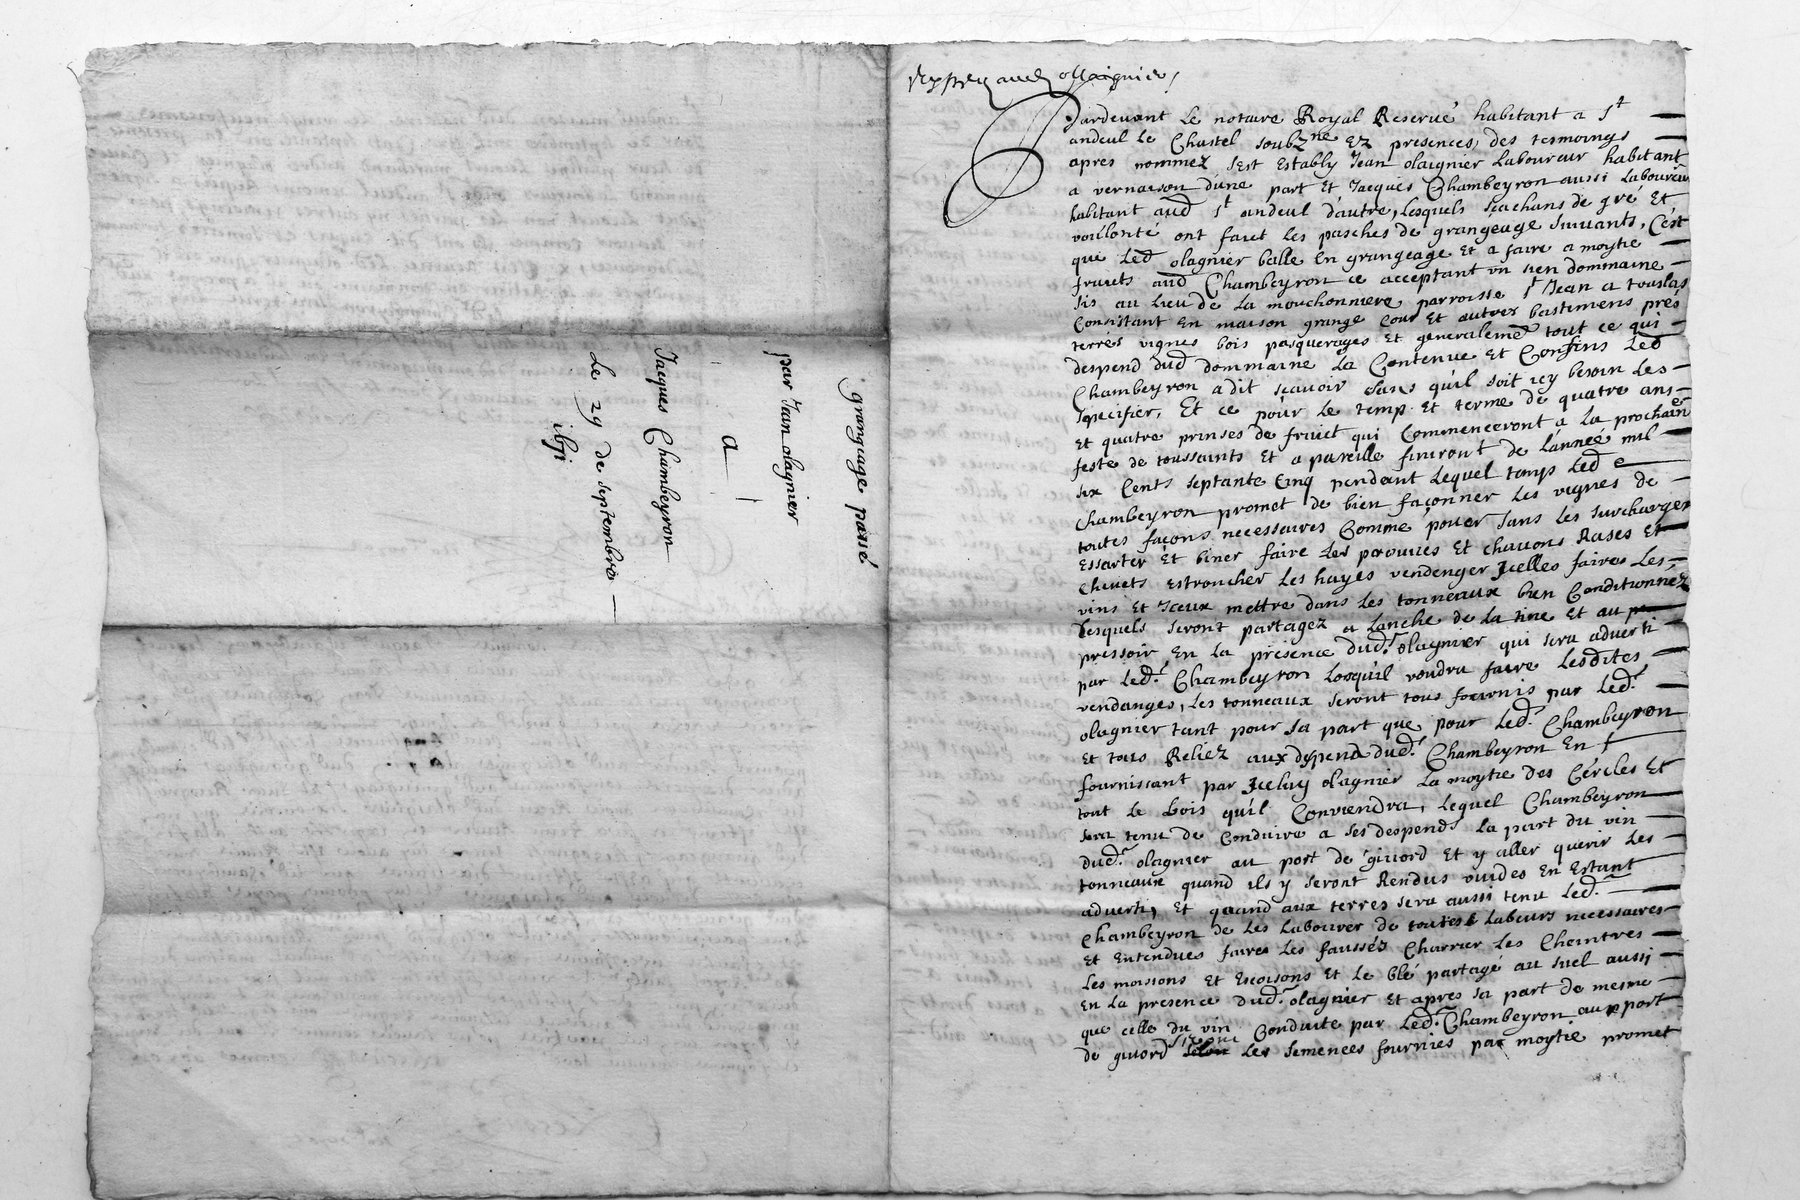 grangeage passé
par Jean olagnier
a
Jacques Chambeyron
Le 29 de septembre
olagnier
Pardevant Le notaire Royal Reservé habitant a St
andeul Le Chastel soubzne Ez presences des tesmoings
apres nommez sest Estably Jean olaignier Laboureur habitant
a vernaison dune part Et Jacques Chambeyron aussi Laboureur
habitant aud St andeul d'autre, Lesquels sçachans de gré Et
voulonté ont faict les pasches de grangeage suivants, C'est
que Led olagnier balle En grangeage Et a faire a moytie
fruicts aud Chambeyron ce acceptant un sien dommaine
sis au Lieu de La mouchonniere parroisse St Jean a touslas
Consistant En maison grange Cour Et autres bastimens prés
terres vignes bois pasquerages Et generalemt tout ce qui
despend dud dommaine La Contenue Et Confins Led
Chambeyron a dit sçavoir sans qu'il soit icy besoin Les
specifier, Et ce pour Le temp Et terme de quatre ans
Et quatre prinses de fruict qui Commenceront a La prochaen
feste de toussaints Et a pareille finiront de L'année mil
six Cents septante Cinq pendant Lequel temps Led
Chambeyron promet de bien façonner Les vignes de
toutes façons necessaires Comme pouer sans Les surcharger
Essarter Et biner faire Les prouues Et chavons Rases Et
Chevets Estroncher Les hayes vendenger Jcelles faire Les
vins Et Jceux mettre dans Les tonneaux bien Conditionnez
Lesquels seront partagez a Lanche de La tine Et au
pressoir En La presence dud. olagnier qui sera adverti
par Led. Chambeyron Lorsqu'il voudra faire Lesdites
vendanges, Les tonneaux seront tous fournis par Led.
olagnier tant pour sa part que pour Led. Chambeyron
Et tous Reliez aux despend dud. Chambeyron En
fournissant par Jceluy olagnier La moytie des Cercles Et
tout Le bois qu'il Conviendra, Lequel Chambeyron
sera tenu de Conduire a ses despends La part du vin
dud. olagnier au port de givord Et y aller querir Les
tonneaux quand ils y seront Rendus vuides En Estant
adverti, Et quand aux terres sera aussi tenu Led.
Chambeyron de Les Labourer de toutes Labeurs necessaires
Et Entendues faire Les faussés Charrier Les Cheintres
Les moissons Et Escoisons Et Le blé partagé au suel aussi
En La presence dud. olagnier Et apres sa part de mesme
que celle du vin Conduite par Led. Chambeyron au port
de givord Les semences fournies par moytie promet